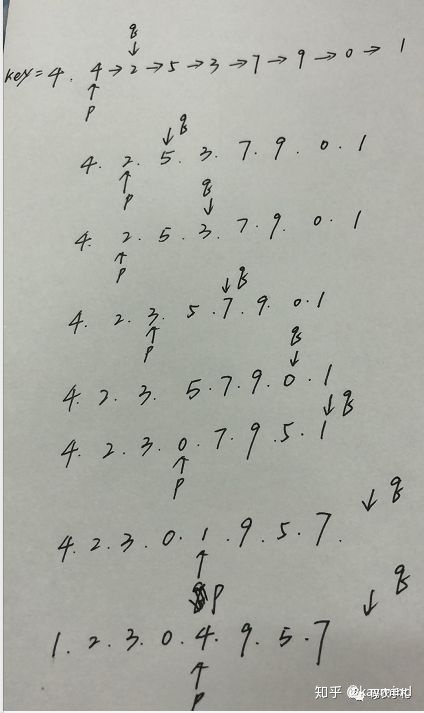 q
key=4. 4→2→5→3→7→9→0→1
p
q
4. 2. 5. 3. 7. 9. 0. 1
p
q
4. 2. 5. 3. 7. 9. 0. 1
p
q
4. 2. 3. 5. 7. 9. 0. 1
p
q
4. 2. 3. 5. 7. 9. 0. 1
q
4. 2. 3. 0. 7. 9. 5. 1
p
q
4. 2. 3. 0. 1. 9. 5. 7.
p
q
1. 2. 3. 0. 4. 9. 5. 7
p
知乎